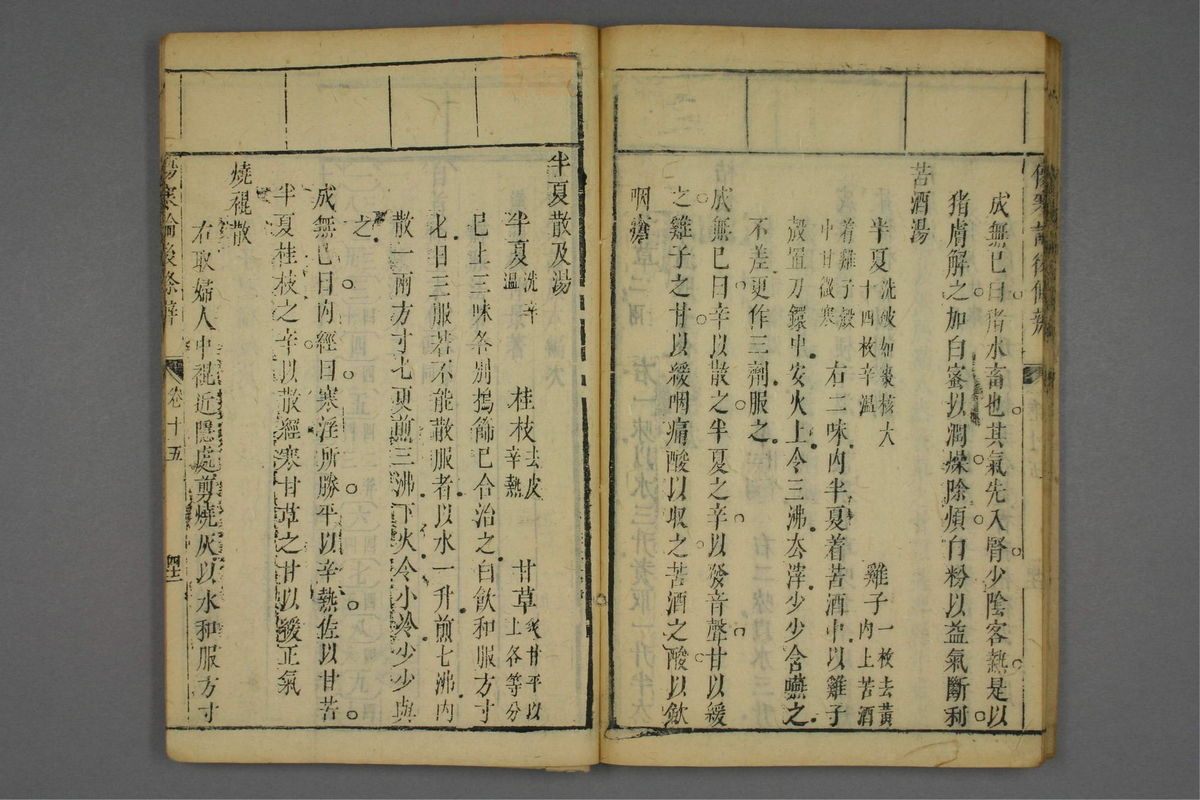 成無巳曰猪水畜也其氣先入腎少陰客熱是以
猪膚解之加白蜜以潤燥除煩白粉以益氣斷利
苦酒湯
半夏洗破如棗核大十四枚辛溫
雞子一枚去黃內上苦酒
着雞子殼中甘微寒
右二味內半夏着苦酒中以雞子
殼置刀鐶中安火上令三沸去滓少少含嚥之
不差更作三劑服之
成無巳曰辛以散之半夏之辛以發音聲甘以緩
之雞子之甘以緩咽痛酸以収之苦酒之酸以斂
咽瘡
半夏散及湯
半夏洗辛溫
桂枝去皮辛熱
甘草炙甘平以上各等分
巳上三味各別搗篩巳合治之白飲和服方寸
匕日三服若不能散服者以水一升煎七沸內
散一兩方寸匕更煎三沸下火令小冷少少與
之
成無巳曰內經曰寒淫所勝平以辛熱佐以甘苦
半夏桂枝之辛以散經寒甘草之甘以緩正氣
燒裩散
右取婦人中裩近隱處剪燒灰以水和服方寸
傷寒論後條辨 卷十五